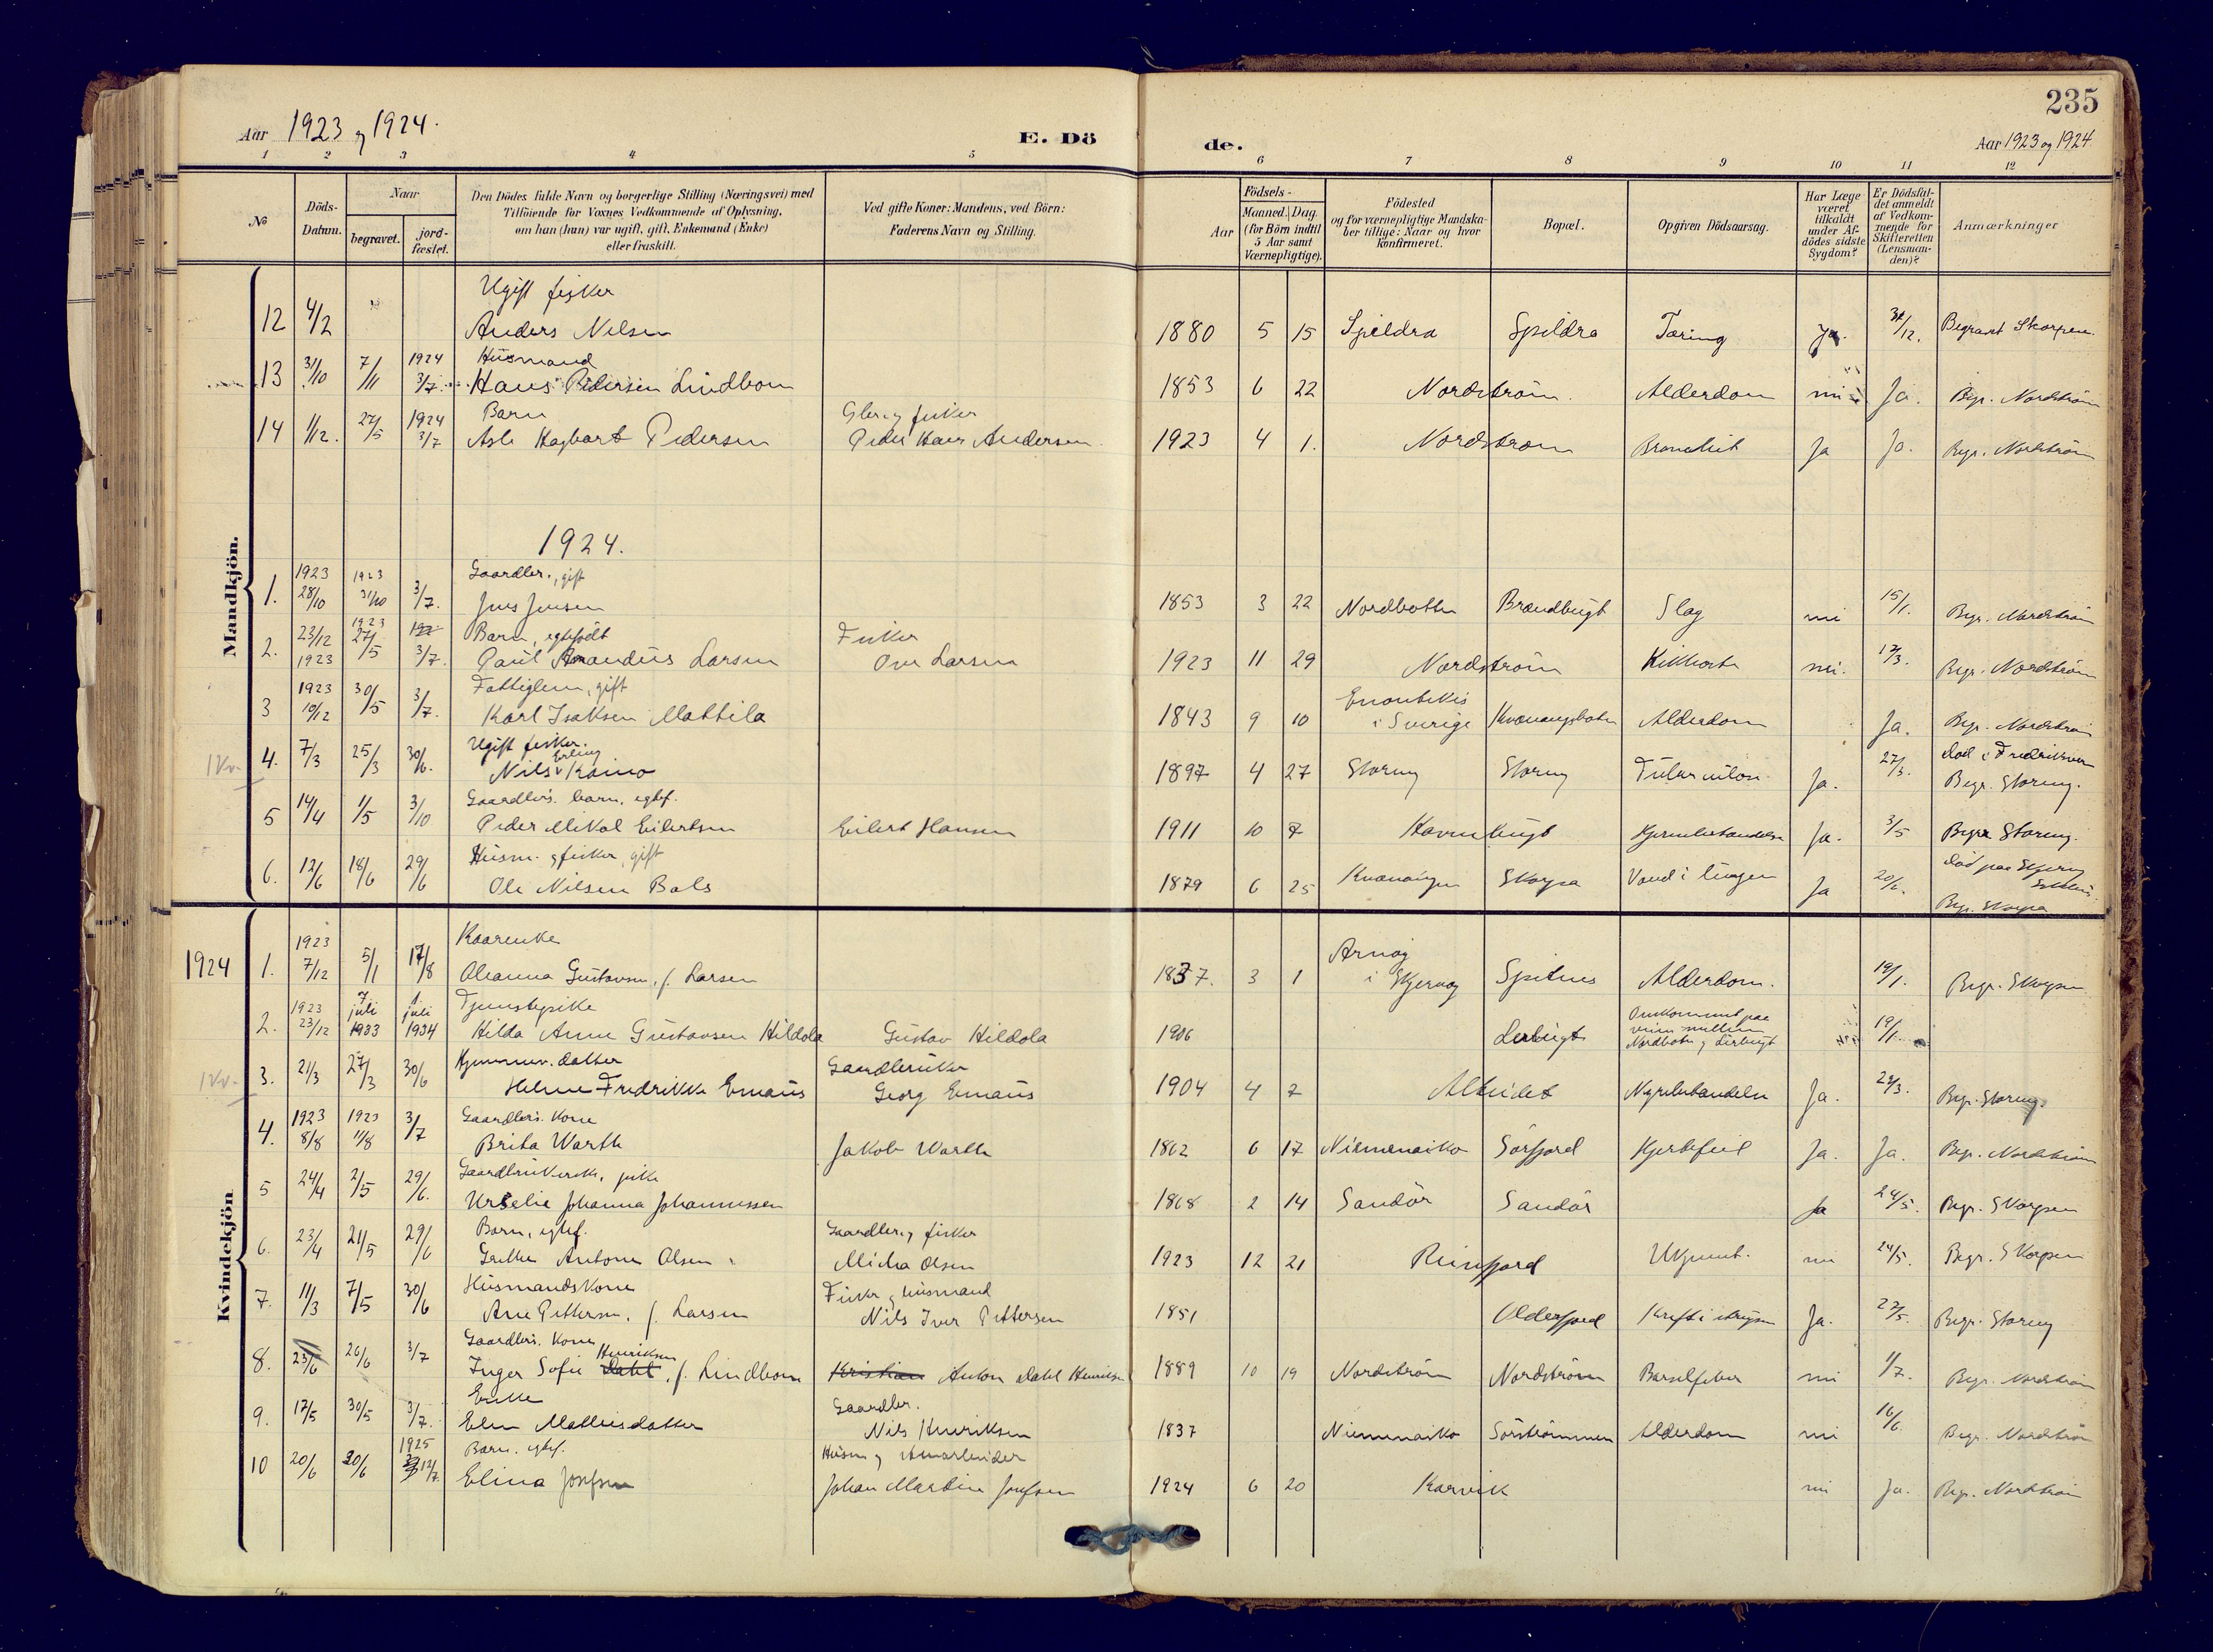 235
Aar 1923 og 1924.
E. Döde.
Aar 1923 og 1924
1 2 3 4 5 6 7 8 9 10 11 12
No
Döds-Datum.
Naar
begravet.
jord-fæstet.
Den Dödes fulde Navn og borgerlige Stilling (Næringsvei) med
Tilföiende for Voxnes Vedkommende af Oplysning,
om han (hun) var ugift, gift, Enkemand (Enke)
eller fraskilt.
Ved gifte Koner: Mandens, ved Börn:
Faderens Navn og Stilling.
Födsels-
Aar
Maaned. Dag.
(for Börn indtil
5 Aar samt
Værnepligtige).
Födested
og for værnepligtige Mandska-
ber tillige: Naar og hvor
Konfirmeret.
Bopæl.
Opgiven Dödsaarsag.
Har Læge
været
tilkaldt
under Af-
dödes sidste
Sygdom?
Er Dödsfal-
det anmeldt
af Vedkom-
mende for
Skifteretten
(Lensman-
den)?
Anmærkninger
Mandkjön.
Ugift fisker
12 4/2 Anders Nilsen 1880 5 15 Spildra Spildra Tæring Ja. 31/12. Begravet Skorpen.
1924 Husmand
13 31/10 7/11 3/7. Hans Pedersen Lindbom 1853 6 22 Nordström. Alderdom nei Ja. Begr. Nordström
1924 Barn Gbr. og fisker
14 1/12. 27/5 3/7 Asle Hagbart Pedersen Peder Hans Andersen 1923 4 1. Nordström Bronchit Ja Ja. Begr. Nordström
1924.
1923 1923 Gaardbr., gift
1. 28/10 31/10 3/7. Jens Jensen 1853 3 22 Nordbotten Brændbugt Slag nei 15/1. Begr. Nordström
23/12 1923 Barn, egtefödt Fisker
2. 1923 27/5 3/7. Paul Amandus Larsen Ove Larsen 1923 11 29 Nordström Kikhoste nei. Begr. Nordström
1923 Fattiglem, gift Enontekis
3 10/12 30/5 3/7. Karl Isaksen Mattila 1843 9 10 i Sverige Kvænangsbotn Alderdom Ja. Begr. Nordström
Ugift fisker.
Erling
4. 7/3 25/3 30/6. Nils Kaino 1897 4 27 Storeng Storeng Tuberkulose Ja. 27/3. död i
Begr. Storeng.
Gaardbr's. barn, egtef.
5 14/4 1/5 3/10 Peder Mikal Eilertsen Eilert Hansen 1911 10 7 Havnebugt Ja. 3/5 Begr. Storeng.
Husm. og fisker, gift
6. 12/6 18/6 29/6 Ole Nilsen Bals 1879 6 25 Kvænangen Skorpa Vand i lungen Ja 20/6. död paa
Begr. Skorpa
Kvindekjön
1924
1923 Kaarenke Arnöy
1. 7/12 5/1 17/8 Oleanna Gustavsen, f. Larsen 1837. 3 1 i Skjervöy Spitnes Alderdom. 19/1. Begr. Skorpen
1923 7 juli 1 juli Tjenestepike Omkommet paa
2. 23/12 1933 1934 Hilda Anne Gustavsen Hildola Gustav Hildola 1906 Lerbugt veien mellem 19/1
Nordbotn og Lerbugt
Hjemmev. datter Gaardbruker
3. 21/3 27/3 30/6 Helene Fredrikke Emaus Georg Emaus 1904 4 7 Alteidet Nyrebetændelse Ja. Begr. Storeng.
1923 1923 Gaardbr's. Kone
4. 8/8 11/8 3/7 Brita Warth Jakob Warth 1862 6 17 Niemenaiko Sörfjord Hjertefeil Ja. Ja. Begr. Nordström
5 24/4 2/5 29/6. Urselie Johanna Johannessen 1868 2 14 Sandör Sandör Ja 24/5. Begr. Skorpen
Barn, egtef. Gaardbr. og fisker
6. 23/4 21/5 29/6 Grethe Antone Olsen Micha Olsen 1923 12 21 Reinfjord Ukjendt. nei 24/5. Begr. Skorpen
Husmandskone Fisker og husmand
7. 11/3 7/5 30/6 Ane Pettersen, f. Larsen Nils Iver Pettersen 1851 Olderfjord Kræft i Ja. 27/5. Begr. Storeng
Gaardbr's. Kone Henriksen
8. 23/6 26/6 3/7 Inger Sofie Dahl, f. Lindbom Kristian Anton Dahl Henriksen 1889 10 19 Nordström Nordström Barselfeber nei 1/7. Begr. Nordström
Enke Gaardbr.
9. 17/5 30/5 3/7. Elen Mathisdatter Nils Henriksen 1837 Niemenaiko Sörströmmen Alderdom nei 16/6. Begr. Nordström
1925 Barn, egtef. Husm. og
10 20/6 30/6 12/7. Elina Josefsen Johan Martin Josefsen 1924 6 20 Karvik nei Ja. Begr. Nordström